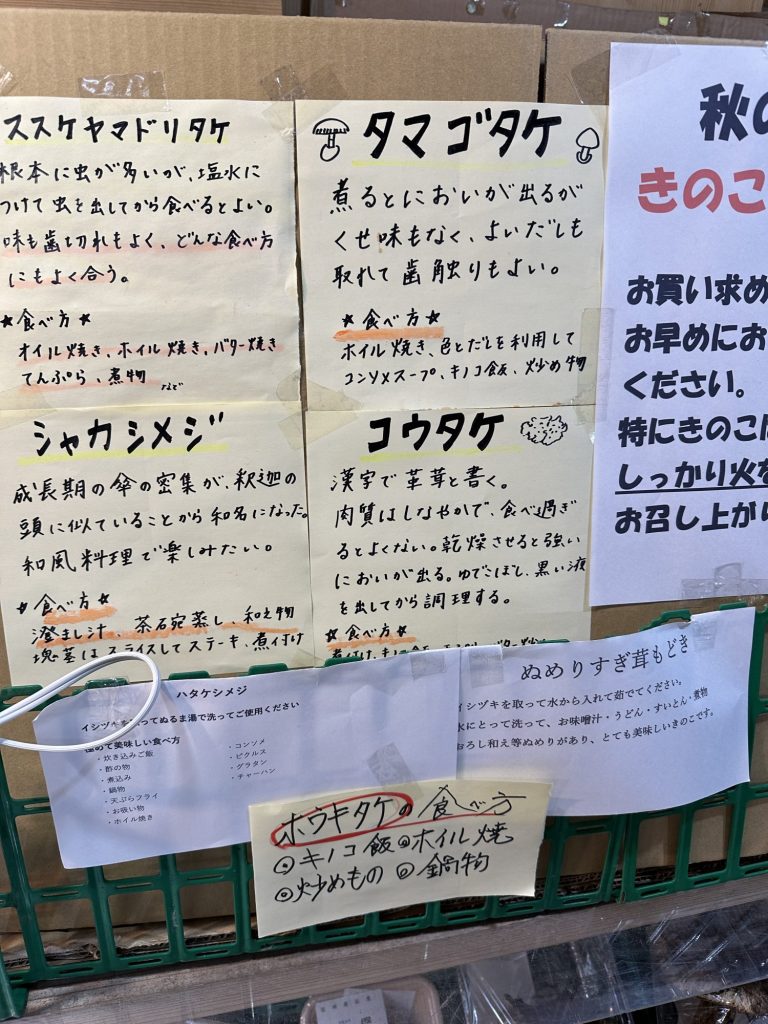 ススケヤマドリタケ
根本に虫が多いが、塩水に
つけて虫を出してから食べるとよい。
味も歯切れもよく、どんな食べ方
にもよく合う。
★食べ方★
オイル焼き、ホイル焼き、バター焼き
てんぷら、煮物 など
タマゴタケ
煮るとにおいが出るが
くせ味もなく、よいだしも
取れて歯触りもよい。
★食べ方★
ホイル焼き、色とだしを利用して
コンソメスープ、キノコ飯、炒め物
シャカシメジ
成長期の傘の密集が、釈迦の
頭に似ていることから和名になった。
和風料理で楽しみたい。
★食べ方★
澄まし汁、茶碗蒸し、和え物
塊茎はスライスしてステーキ、煮付け
コウタケ
漢字で革茸と書く。
肉質はしなやかで、食べ過ぎ
るとよくない。乾燥させると強い
においが出る。ゆでこぼし、黒い液
を出してから調理する。
★食べ方★
秋の
きのこ
お買い求め
お早めにお
ください。
特にきのこは
しっかり火を
お召し上がり
ハタケシメジ
イシヅキを
ってぬるま湯で洗ってご使用ください
極めて美味しい食べ方
・炊き込みご飯
・酢の物
・煮込み
・鍋物
・天ぷらフライ
・お吸い物
・ホイル焼き
・コンソメ
・ピクルス
・グラタン
・チャーハン
ぬめりすぎ茸もどき
イシヅキを取って水から入れて茹でてください。
水にとって洗って、お味噌汁・うどん・すいとん・煮物
おろし和え等ぬめりがあり、とても美味しいきのこです。
ホウキタケの食べ方
◎キノコ飯◎ホイル焼
◎炒めもの ◎鍋物